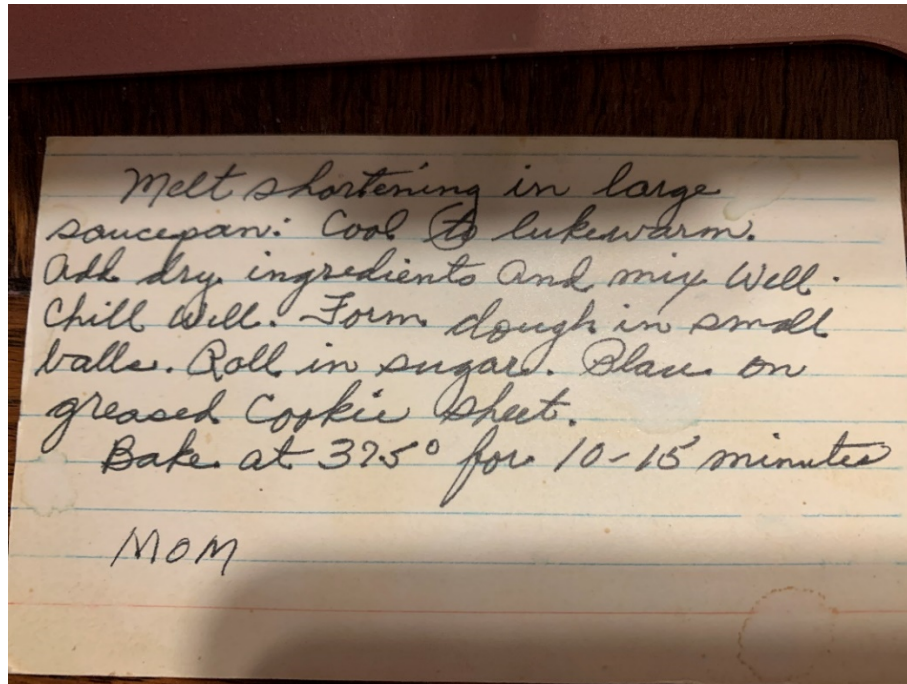 Melt shortening in large
saucepan. Cool to lukewarm.
Add dry ingredients and mix well.
Chill well. Form dough in small
balls. Roll in sugar. Place on
greased cookie sheet.
Bake at 375° for 10-15 minutes
MOM